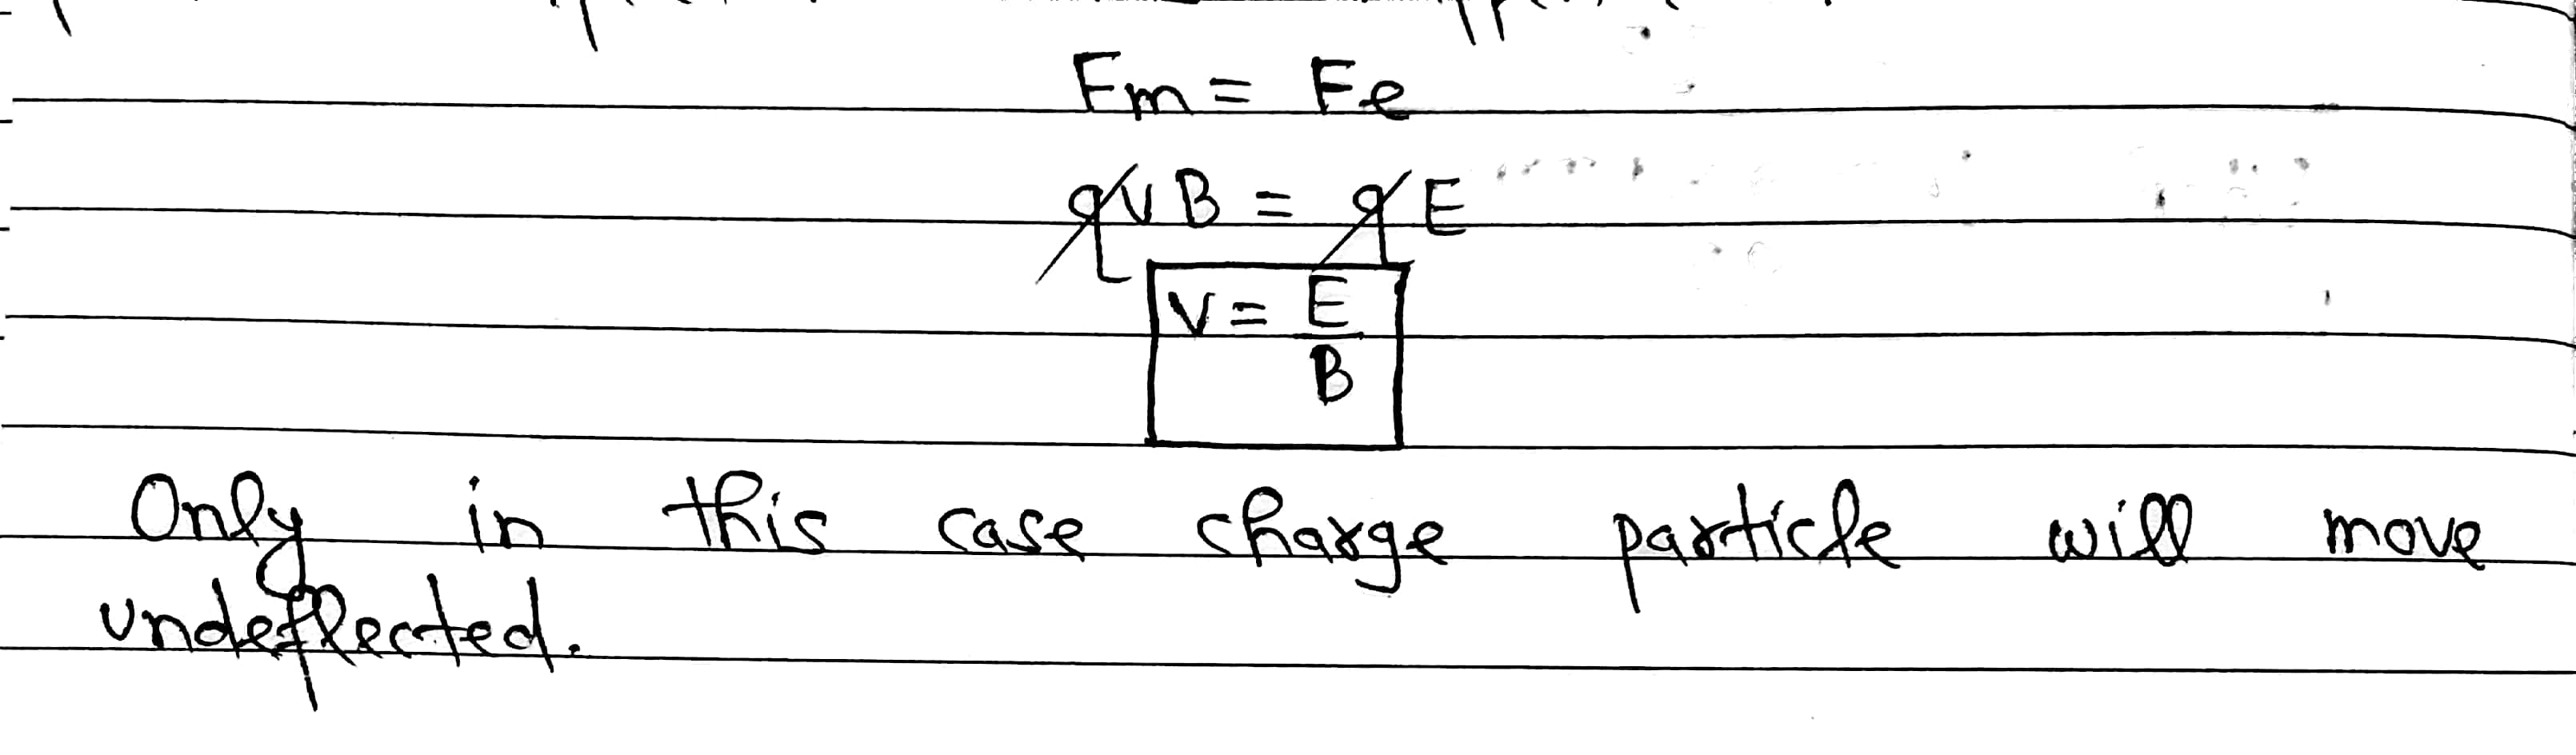 Fm = Fe
qvB = qE
v = E/B
Only in this case charge particle will move
undeflected.